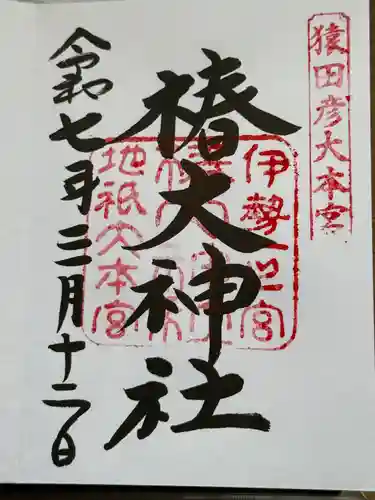 猿田彦大本宮
椿大神社
伊勢一宮
地祇大本宮
令和七年三月十二日